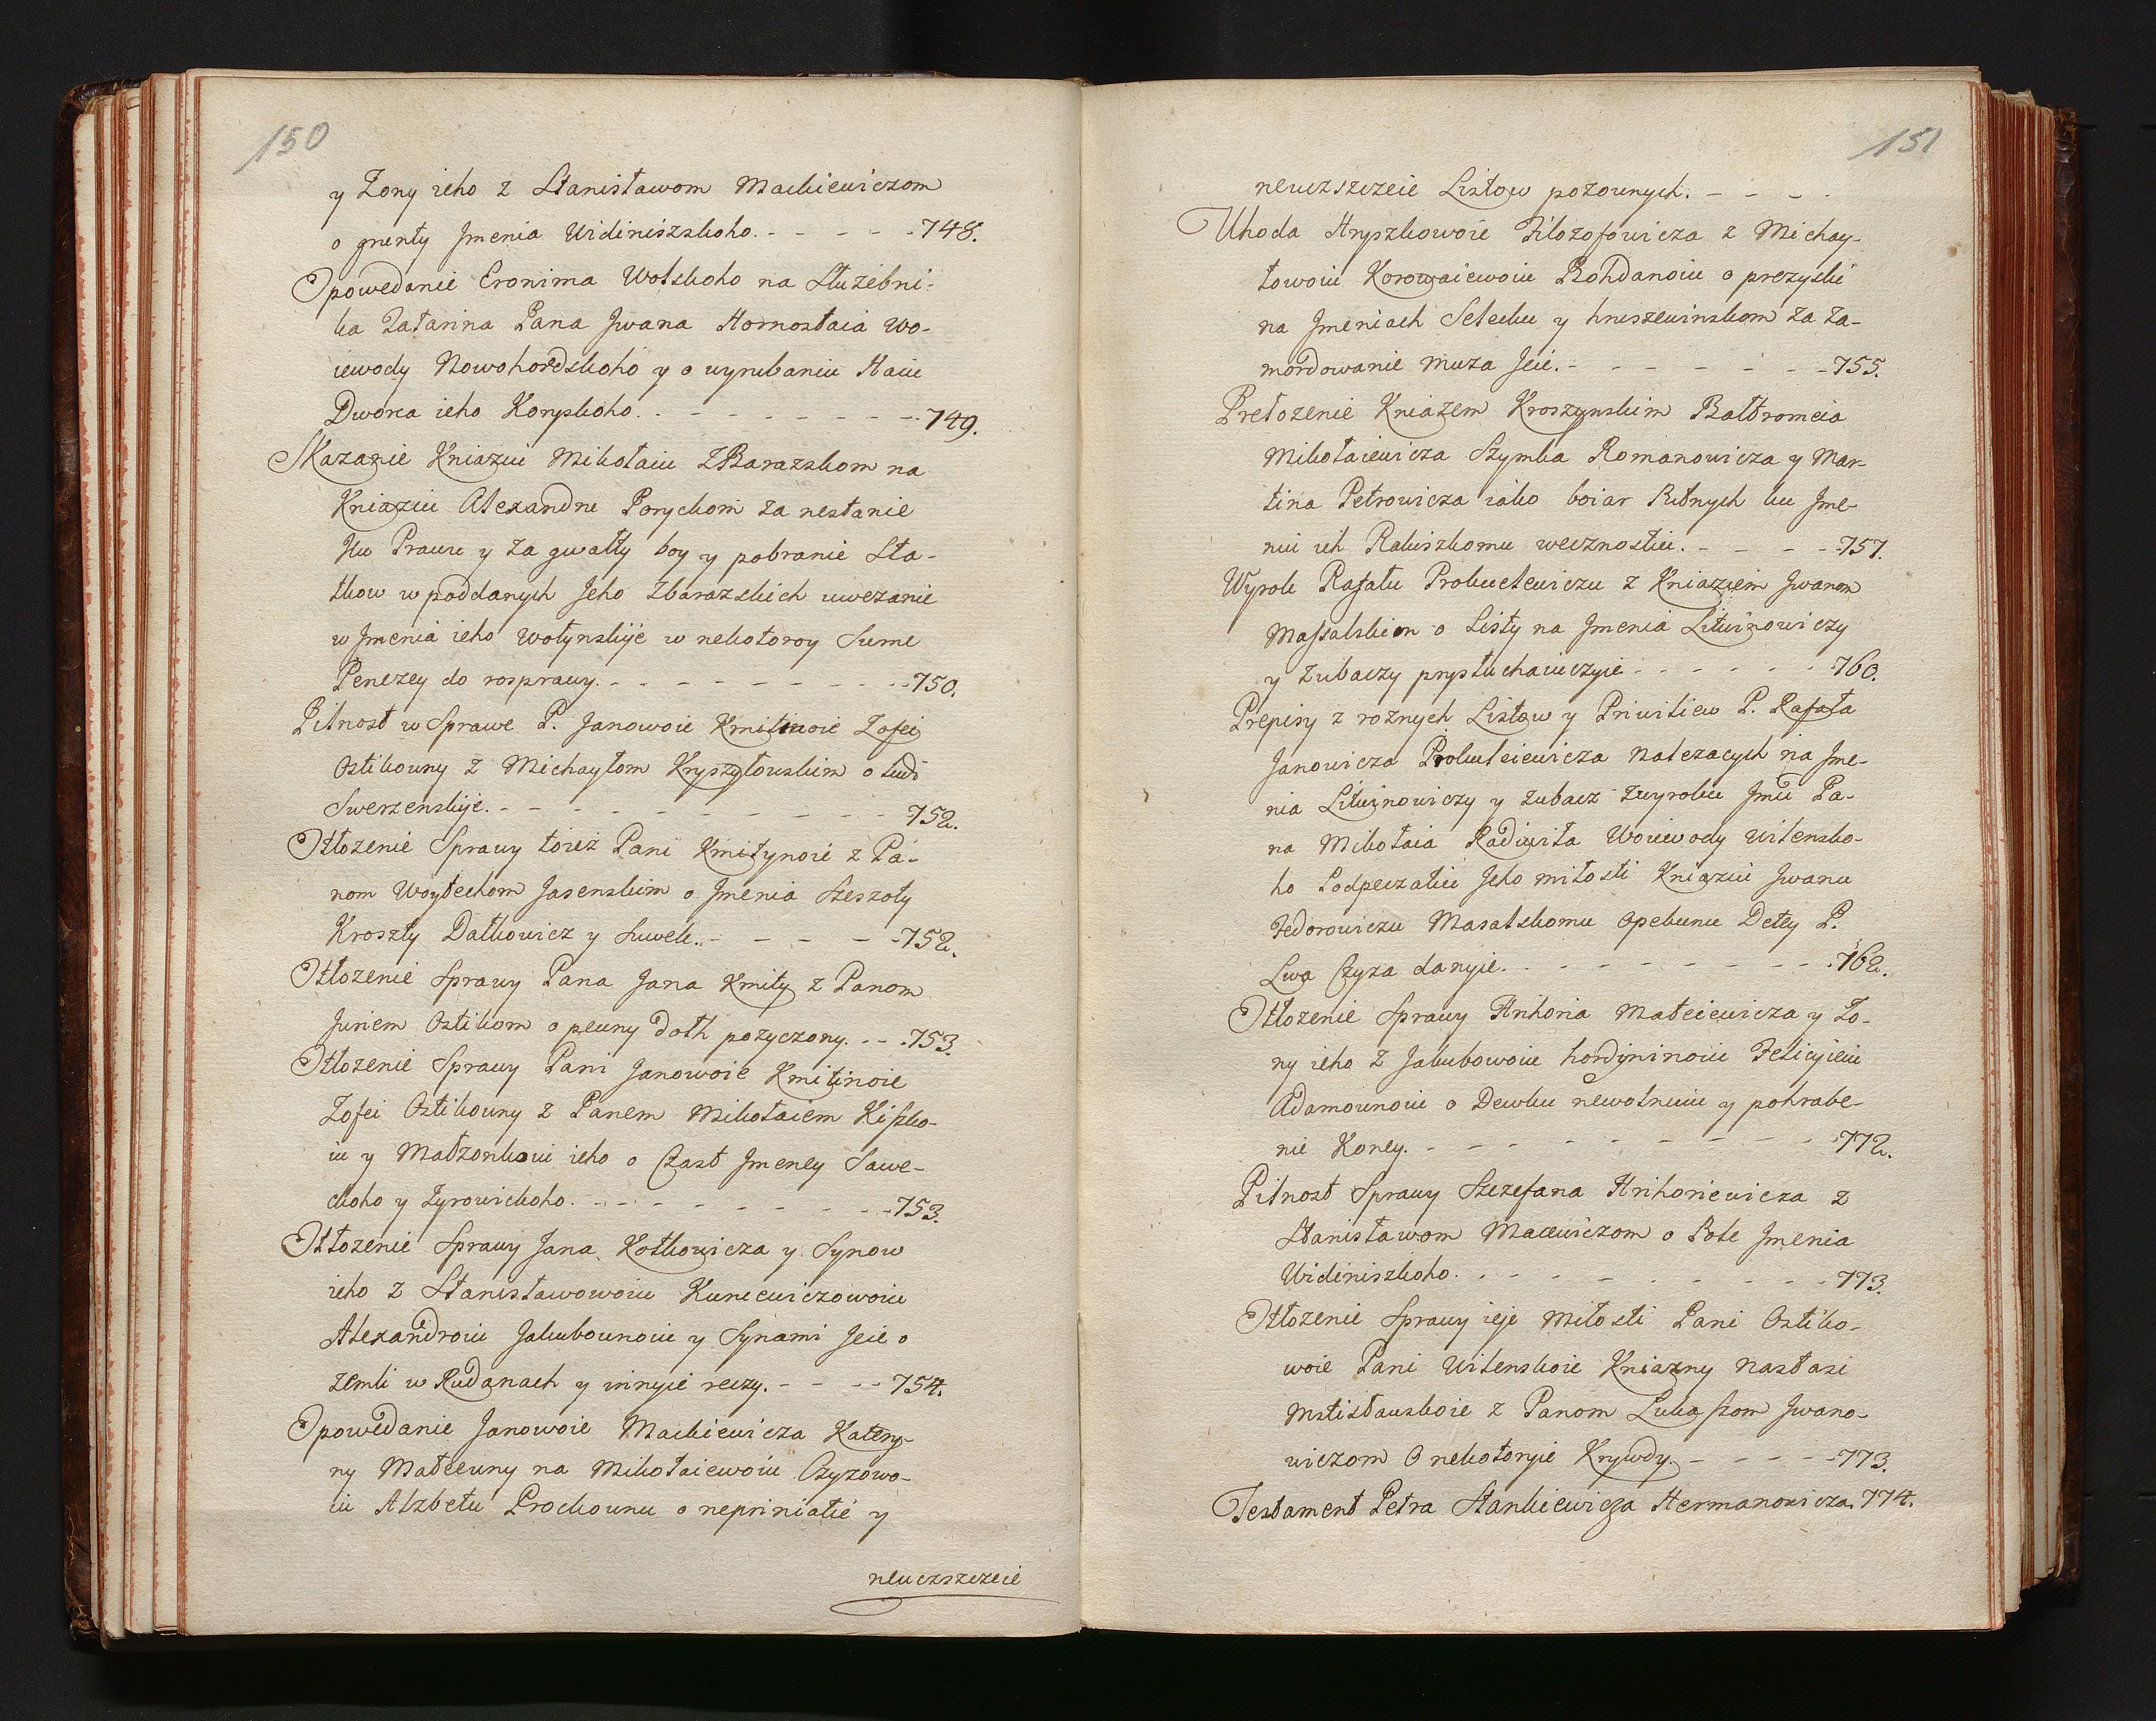 150
y Żony ieho z Stanisławom Mackiewiczom
o grunty Jmenia Widiniszskoho. - - - - - 748.
Opowedanie Eronima Wolskoho na Służebni-
ka Tatarina Pana Jwana Hornostaia Wo-
iewody Nowohordskoho y o wyrubaniu Haiu
Dworca ieho Koryskoho. - - - - - - - 749.
Skazanie Kniaziu Mikołaiu ZBarazskom na
Kniaziu Alexandru Poryckom za nestanie
Ku Prawu y za gwałty boy y pobranie Sta-
tkow w poddanych Jeho Zbarazskich uwezanie
w Jmenia ieho Wołynskije w nekotoroy Sume
Penezey do rosprawy. - - - - - - - - 750.
Pilnost w Sprawe P. Janowoie Kmitinoie Zofei
Ostikowny z Michayłom Kryszyłowskim o ludi
Swerzenskije. - - - - - - - - - - 752.
Otłozenie Sprawy toież Pani Kmitynoie z Pa-
nom Woytechom Jasenskim o Jmenia Szeszoły
Kroszty Datkowicz y Suwek. - - - - - 752.
Otłozenie Sprawy Pana Jana Kmity z Panom
Juriem Ostikom o pewny dołh pożyczony. - - - 753.
Otłozenie Sprawy Pani Janowoie Kmitinoie
Zofei Ostikowny z Panem Mikołaiem Kiszko-
iu y Małzonkoiu ieho o Czast Jmeney Sawe-
ckoho y Żyrowickoho. - - - - - - - - 753.
Otłozenie Sprawy Jana Kotkowicza y Synow
ieho z Stanisławowoiu Kuncewiczowoiu
Alexandroiu Jakubownoiu y Synami Jeie o
zemli w Rudanach y innyie reczy. - - - - 754.
Opowedanie Janowoie Mackiewicza Katery-
ny Mateewny na Mikołaiewoiu Czyzowo-
iu Alzbetu Prockownu o nepriniatie y
neuczszczeie
151
neuczszczeie Listow pozownych. - - - -
Uhoda Hryszkowoie Filozofowicza z Michay-
łowoiu Korowaiewoiu Bohdanoiu o prezyski
na Jmeniach Selecku y hruszewinskom za za-
mordowanie muza Jeie. - - - - - - - 755.
Prełozenie Kniazem Kroszynskim Bałtromeia
Mikołaiewicza Szymka Romanowicza y Mar-
tina Petrowicza iako boiar Putnych ku Jme-
niu ich Rakiszkomu wecznostiu. - - - - 757.
Wyrok Rafału Prokuleewiczu z Kniaziem Jwanom
Massalskim o Listy na Jmenia Litwinowiczy
y Zubaczy prysłuchaiuczyie - - - - - 760.
Prepisy z roznych Listow y Priwiliew P. Rafała
Janowicza Prokuleiewicza Nalezacych na Jme-
nia Litwinowiczy y zubacz zwyroku Jmū Pa-
na Mikołaia Radiwiła Woiewody Wilensko-
ho Podpeczatiu Jeho miłosti Kniaziu Jwanu
Fedorowiczu Masalskomu Opekunu Detey P.
Lwa Czyza danyie. - - - - - - - - 762.
Otłozenie Sprawy Hrihoria Mateiewicza y Żo-
ny ieho z Jakubowoiu hordyninoiu Felicyieiu
Adamownoiu o Dewku newolnuiu y pohrabe-
nie Koney. - - - - - - - - - - 772.
Pilnost Sprawy Szczefana Hrihoriewicza z
Stanisławom Macewiczom o Pole Jmenia
Widiniszkoho. - - - - - - - - - 773.
Otłozenie Sprawy ieje Miłosti Pani Ostiko-
woie Pani Wilenskoie Kniazny Nastasi
Mstisławskoie z Panom Lukaszom Jwano-
wiczom O nekotoryie Krywdy. - - - - 773.
Testament Petra Stankiewicza Hermanowicza. 774.